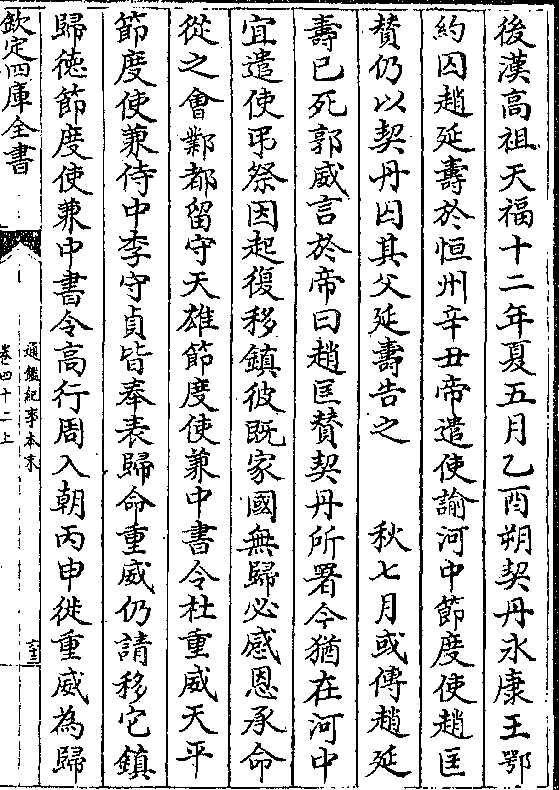 後漢高祖天福十二年夏五月乙酉朔契丹永康王鄂
約囚趙延壽於恒州辛丑帝遣使諭河中節度使趙匡
賛仍以契丹囚其父延壽告之　　秋七月或傳趙延
壽已死郭威言於帝曰趙匡賛契丹所署今猶在河中
宜遣使弔祭因起復移鎮彼既家國無歸必感恩承命
從之會鄴都留守天雄節度使兼中書令杜重威天平
節度使兼侍中李守貞皆奉表歸命重威仍請移它鎮
歸徳節度使兼中書令高行周入朝丙申徙重威為歸
欽定四庫全書
通鑑紀事本末
卷四十二上
六十三